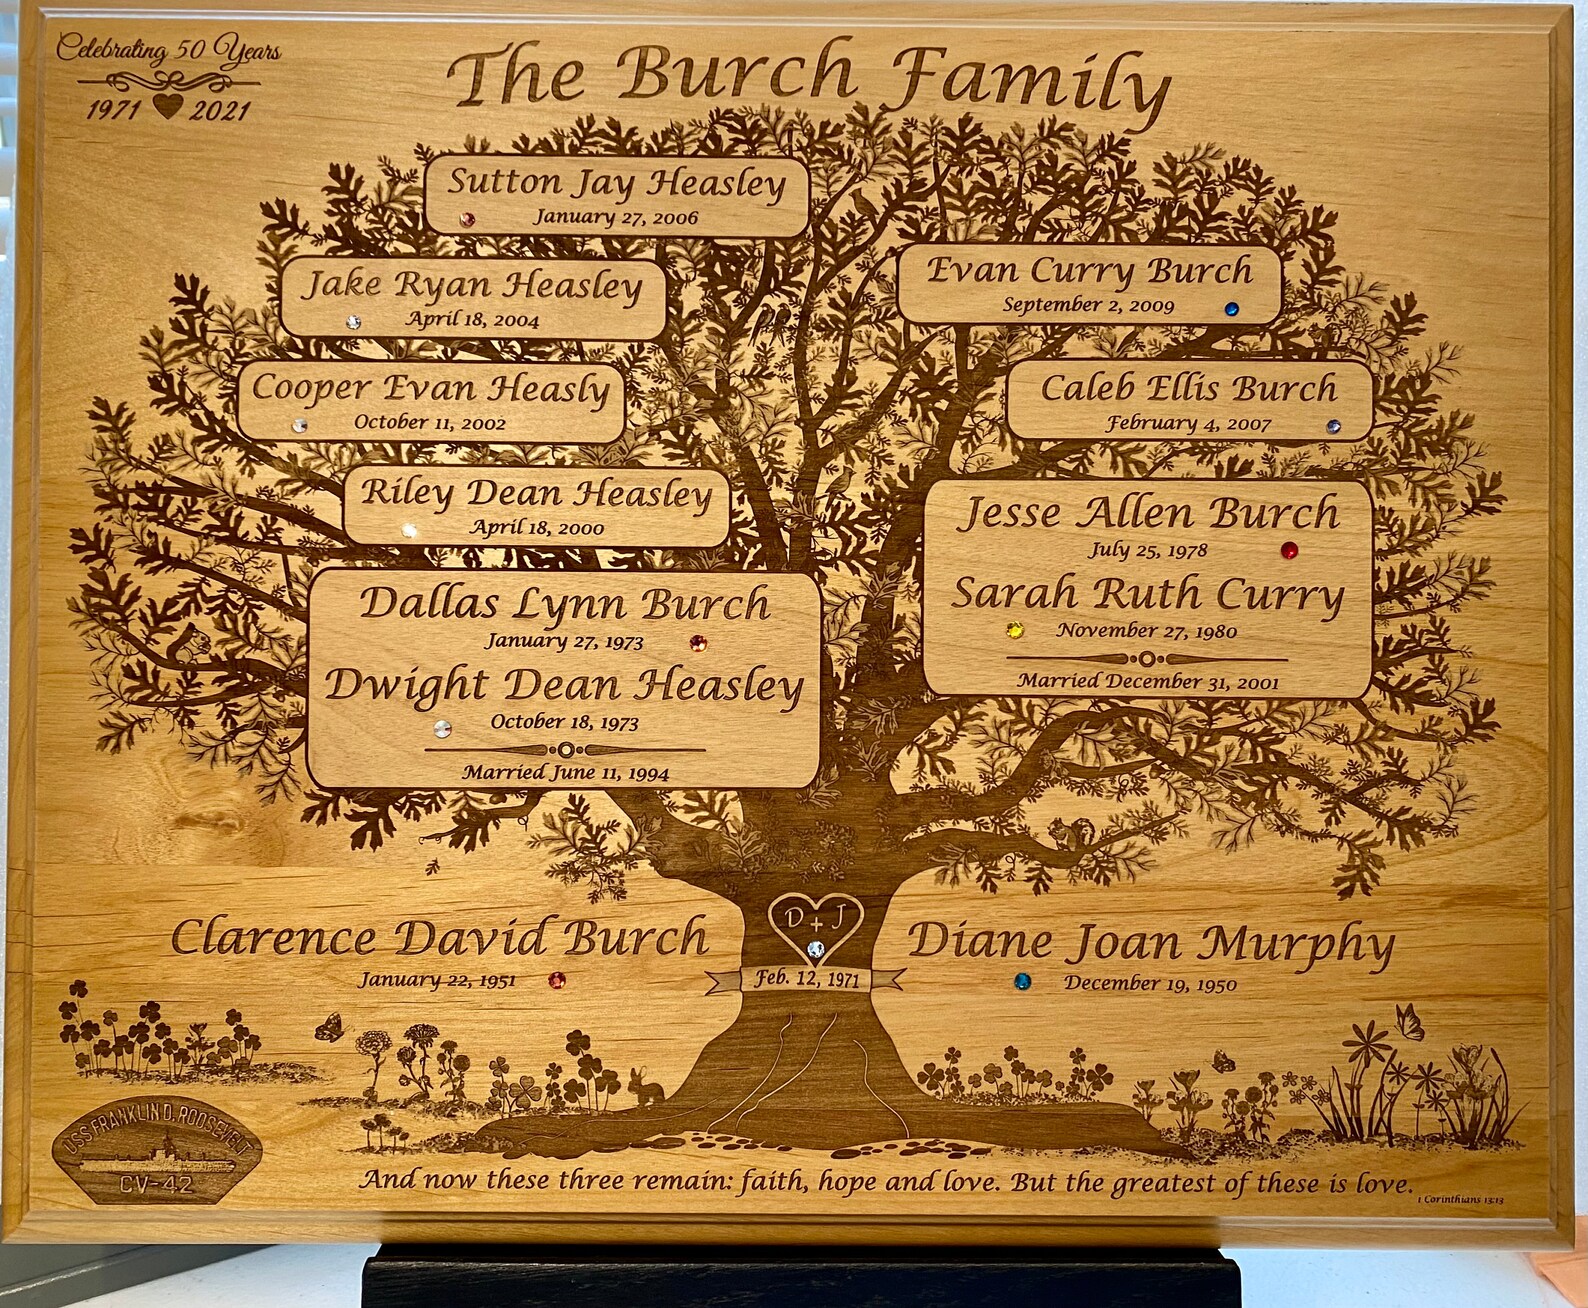 Celebrating 50 Years
1971 2021
The Burch Family
Sutton Jay Heasley
January 27, 2006
Jake Ryan Heasley
April 18, 2004
Evan Curry Burch
September 2, 2009
Cooper Evan Heasly
October 11, 2002
Caleb Ellis Burch
February 4, 2007
Riley Dean Heasley
April 18, 2000
Jesse Allen Burch
July 25, 1978
Sarah Ruth Curry
November 27, 1980
Married December 31, 2001
Dallas Lynn Burch
January 27, 1973
Dwight Dean Heasley
October 18, 1973
Married June 11, 1994
D + J
Feb. 12, 1971
Clarence David Burch
January 22, 1951
Diane Joan Murphy
December 19, 1950
USS FRANKLIN D. ROOSEVELT
CV-42
And now these three remain: faith, hope and love. But the greatest of these is love.
1 Corinthians 13:13